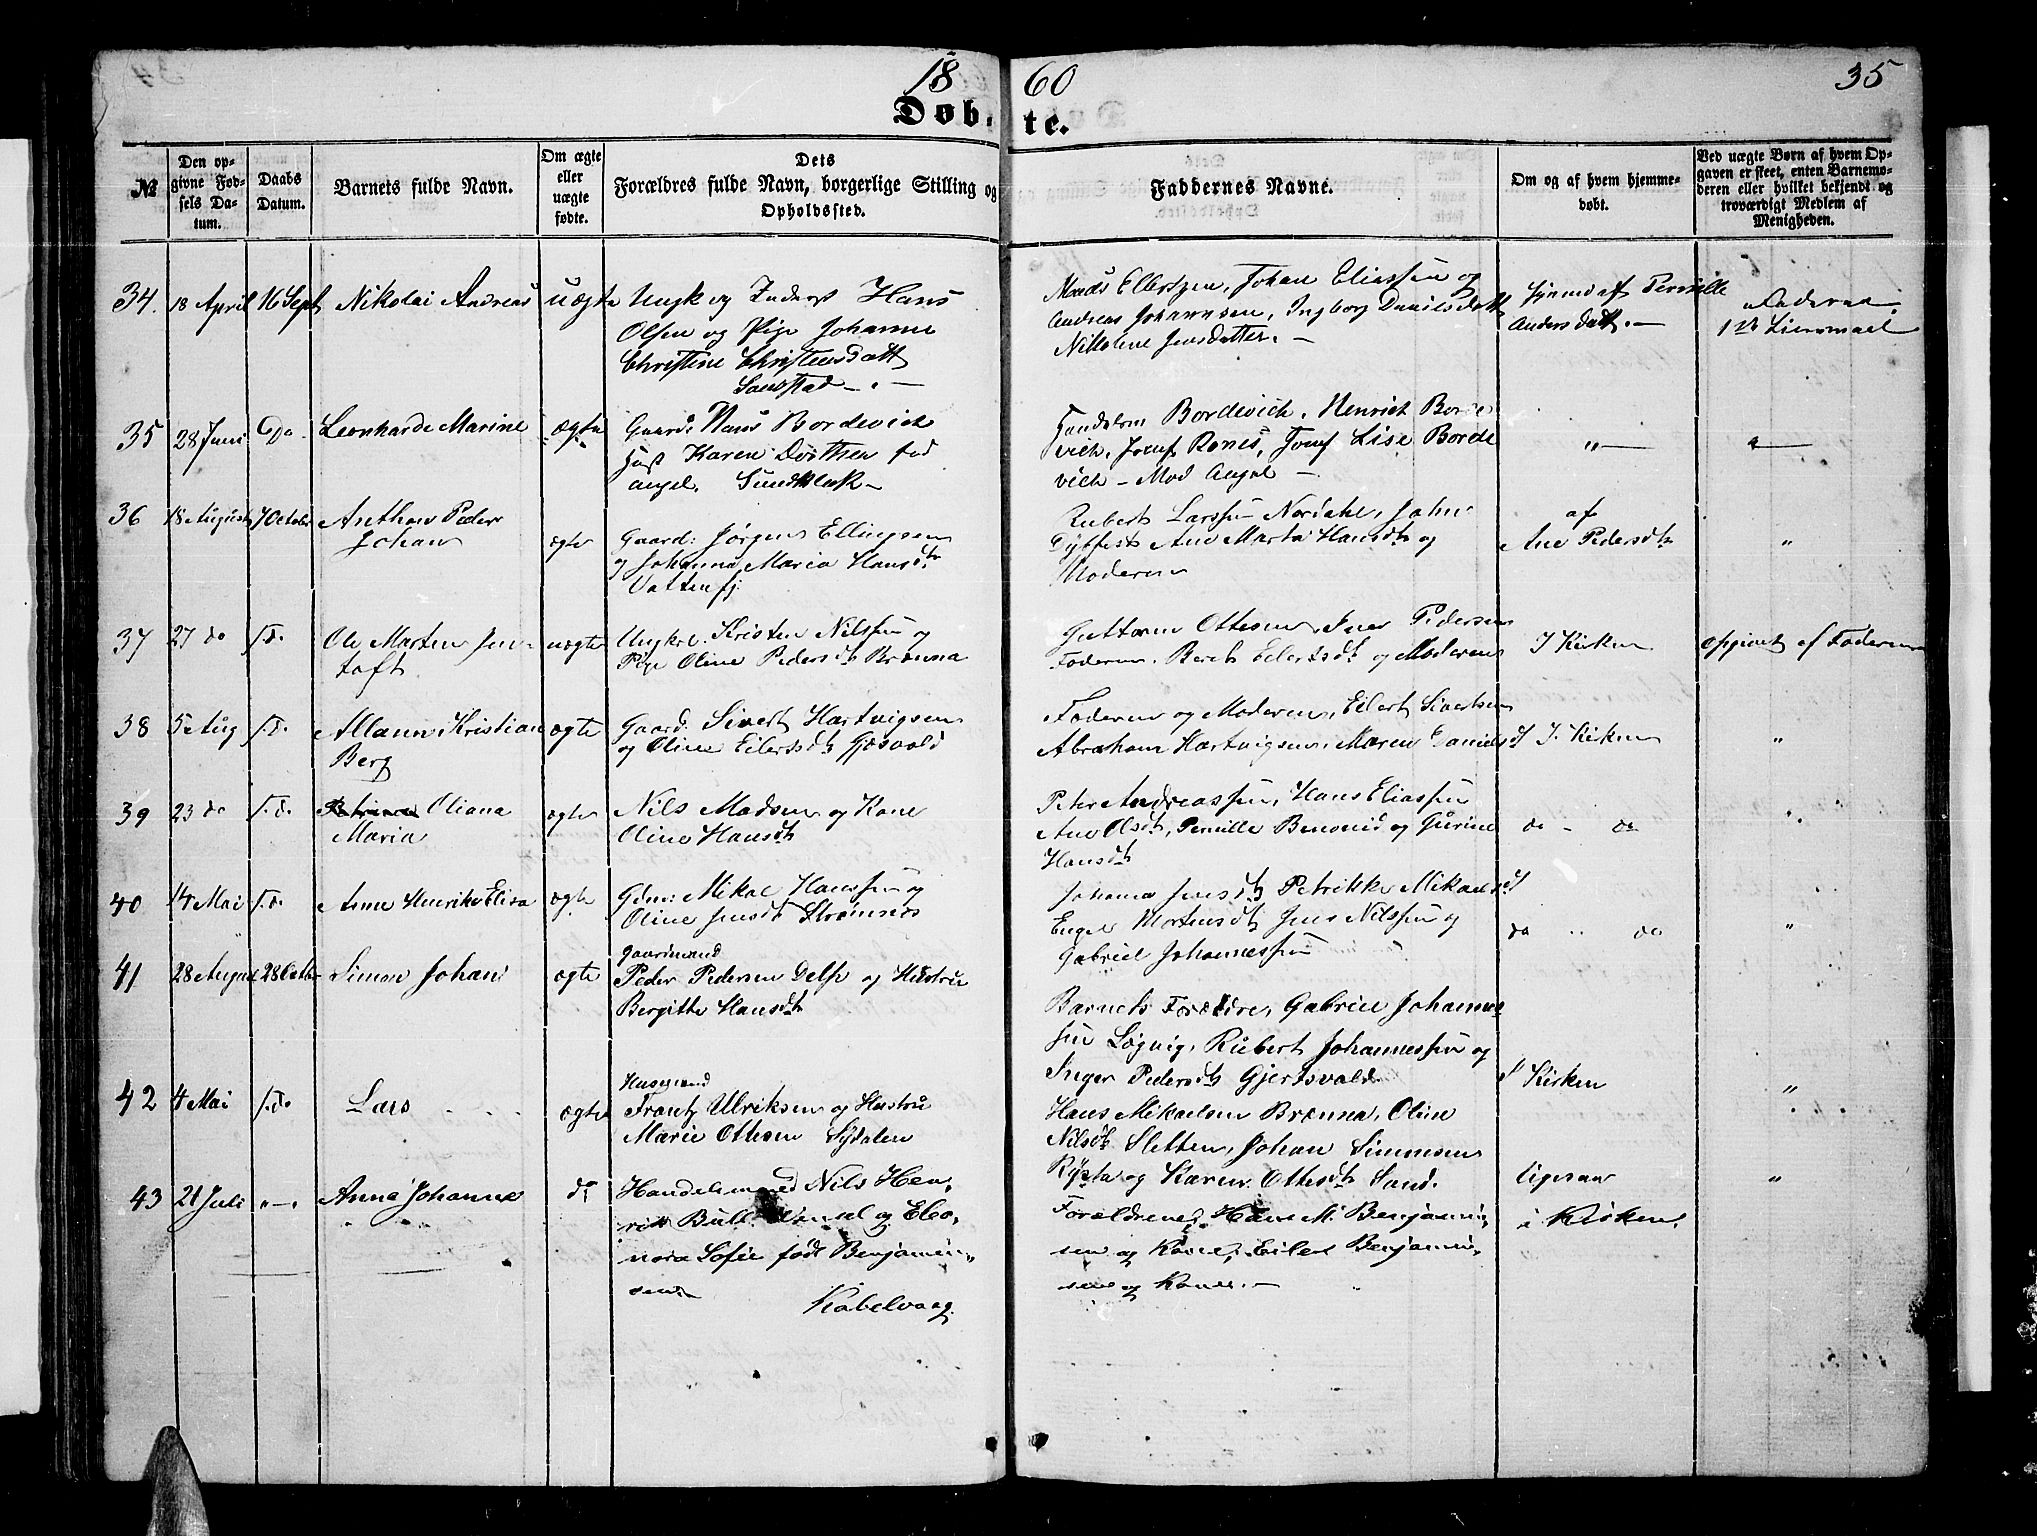 18 60 35
Døbte.
№
Den opgivne Fødsels Datum.
Daabs Datum.
Barnets fulde Navn.
Om ægte eller uægte fødte.
Dets Forældres fulde Navn, borgerlige Stilling og Opholdssted.
Faddernes Navne.
Om og af hvem hjemmedøbt.
Ved uægte Børn af hvem Opgaven er skeet, enten Barnemoderen eller hvilket bekjendt og troværdigt Medlem af Menigheden.
34. 18 April 16 Sept Nikolai Andreas uægte Ungk og Hans
Olsen og Pige Johanne
Christine Christensdatt
Mads Ellertzen, Johan Eliassen og
Andreas Johannsen, Ingborg Danielsdatt
Nikoline Jensdatter. —
Hjemmed af Pernille
Andersdatt. —
35 28 Juni Do Leonharde Marine ægte Gaard: Hans Bordevich
Karen fød
Angel. Sundklak —
Handelsm Bordevich, Henrich Borde
vich, Josef Rones, Lise Borde
vich — Mad Angel —
" —
36 18 August 7 October Anthon Peder
Johan
ægte Gaard: Jørgen Ellingsen
og Johanna Maria Hansdtr
Vattenfj.
Rubert Larssen Nordahl, John
Ane Marta Hansdtr og
Moderen
af
Ane Pedersdtr "
37 27 do s.d. Ole Marten Jen-
toft
uægte Ungkrl. Kristen Nilssen og
Pige Oline Pedersdtr Brenna
Guttorm Ottesen, Iver Pedersen
Faderen. Beret Eilertsdt og Moderen
I Kirken opgivet af Faderen
38 5 Aug s.d. Allaun Kristian
Berg
ægte Gaard. Sivert Hartvigsen
og Oline Eilertsdtr Gjøsvold
Faderen og Moderen, Eilert Sivertsen
Abraham Hartvigsen, Maren Danielsd
I Kirken "
39 23 do s.d. Oliana
Maria
ægte Nils Madsen og Kone
Oline Hansdtr
Peter Andreassen, Hans Eliassen
Ane Olsdtr, Pernille Benonid og Gurine
Hansdtr
do — do ".
40 14 Mai s.d. Anne Henrike Elisa ægte Gdm: Mikal Hanssen og
Oline Jensdtr Strømnes
Johanna Jensdtr Petrikke Mikaelsd
Engel Mortensdtr Jens Nilssen og
Gabriel Johannessen
do " do "
41 28 August 28 Octbr Simon Johan ægte Gaardmand
Peder Pedersen Delp og Hustru
Bergitte Hansdtr
Barnets Forældre, Gabriel Johannes
sen Løgvig, Rubert Johannessen og
Inger Pedersdtr Gjertsvold
I Kirken "
42 4 Mai s.d. Lars ægte Husmand
Frantz Ulriksen og Hustru
Marie Ottesen Sydalen
Hans Mikaelsen Brenna, Oline
Nilsdtr Sletten, Johan Simonsen
Rysta og Karen Ottesdtr Sand.
43 21 Juli " — Anna Johanne do Handelsmand Nils Hen-
rik Bull og Eleo-
nora Sofie født Benjamin-
sen
Kabelvaag.
Forældrene, Hans M. Benjamin-
sen og Kone, Eilert Benjamin-
sen og Kone. —
Ligesaa
i Kirken. "